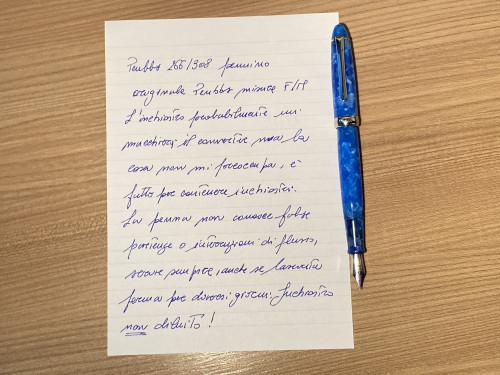 Penbbs 266/308 pennino
originale Penbbs misura F/M
L'inchiostro probabilmente mi
macchierà il converter ma la
cosa non mi preoccupa, è
fatto per contenere inchiostri.
La penna non conosce false
partenze o interruzioni di flusso,
scrive sempre, anche se lasciata
ferma per diversi giorni. Inchiostro
non diluito!